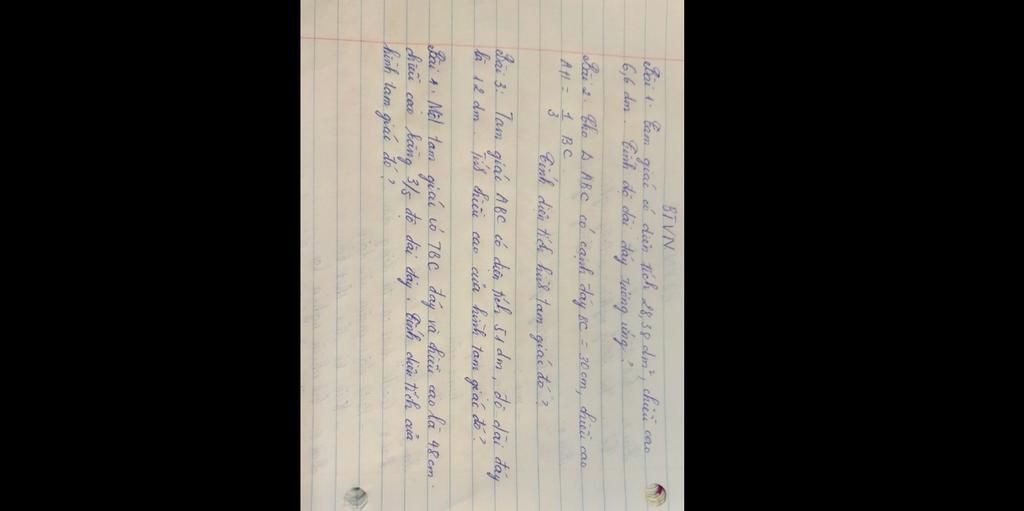 BTVN
Bài 1: Tam giác có diện tích 28,38 dm², chiều cao
6,6 dm. Tính độ dài đáy tương ứng?
Bài 2: Cho Δ ABC có cạnh đáy BC = 30cm, chiều cao
AH = 1/3 BC.
Tính diện tích hình tam giác đó?
Bài 3: Tam giác ABC có diện tích 51 dm, độ dài đáy
là 12 dm. Tính chiều cao của hình tam giác đó?
Bài 4: Một tam giác có TBC đáy và chiều cao là 48cm.
chiều cao bằng 3/5 độ dài đáy. Tính diện tích của
hình tam giác đó?